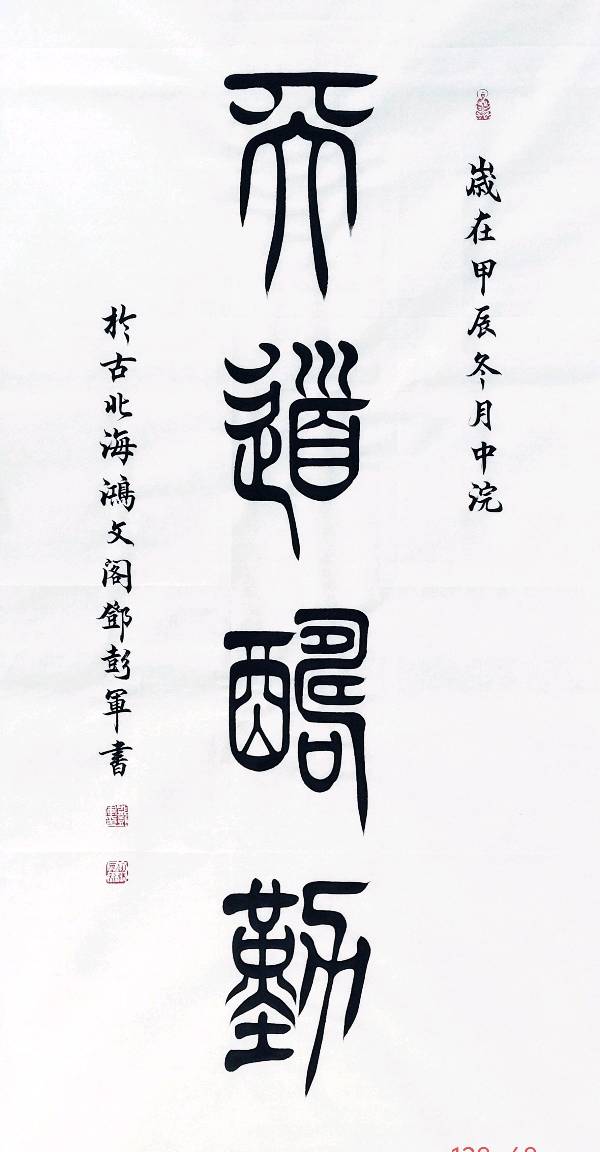 歲在甲辰冬月中浣
天道酬勤
於古北海鴻文閣鄧彭軍書